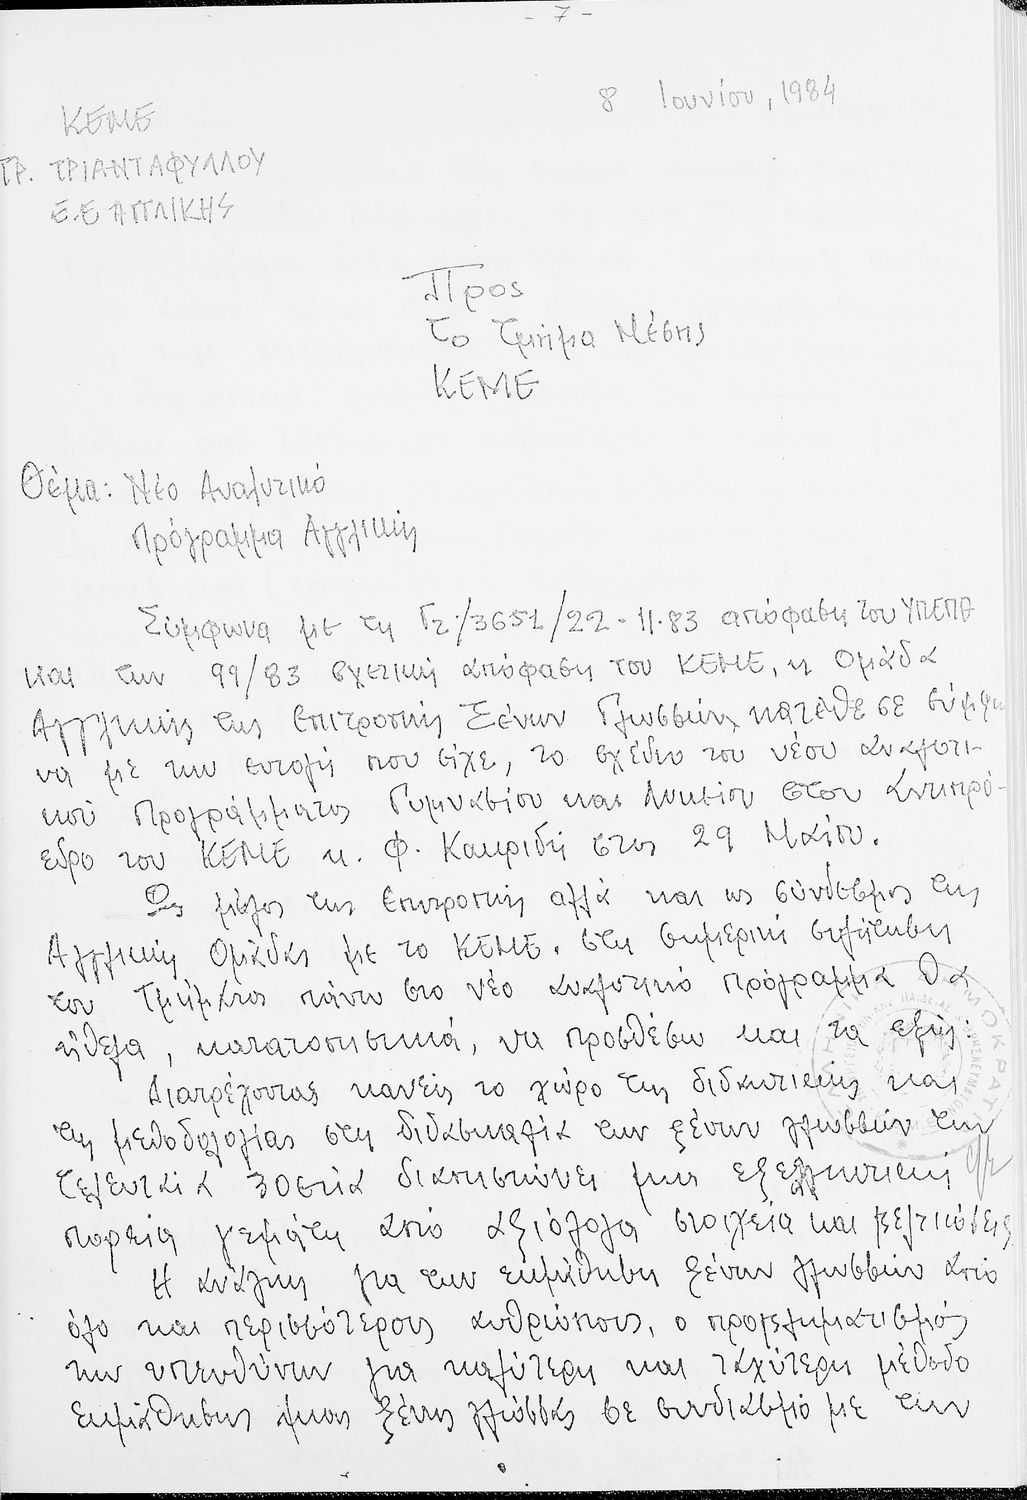 - 7 -
8 Ιουνίου, 1984
ΚΕΜΕ
ΤΡ. ΤΡΙΑΝΤΑΦΥΛΛΟΥ
Ε.Ε ΑΓΓΛΙΚΗΣ
Προς
το Τμήμα Μέσης
ΚΕΜΕ
Θέμα: Νέο Αναλυτικό
πρόγραμμα Αγγλικής
Σύμφωνα με τη Γ2/3651/22-11-83 απόφαση του ΥΠΕΠΘ
και την 99/83 σχετική απόφαση του ΚΕΜΕ, η Ομάδα
Αγγλικής της Επιτροπής Ξένων Γλωσσών, κατέθεσε σύμφω
να με την εντολή που είχε, το σχέδιο του νέου αναλυτι-
κού Προγράμματος Γυμνασίου και Λυκείου στον Αντιπρό-
εδρο του ΚΕΜΕ κ. Φ. Κακριδή στις 29 Μαΐου.
Ως μέλος της Επιτροπής αλλά και ως σύνδεσμος της
Αγγλικής Ομάδας με το ΚΕΜΕ. στη σημερινή συζήτηση
του Τμήματος πάνω στο νέο αναλυτικό πρόγραμμα θα
ήθελα, κατατοπιστικά, να προσθέσω και τα εξής:
Διατρέχοντας κανείς το χώρο της διδακτικής και
της μεθοδολογίας στη διδασκαλία των ξένων γλωσσών την
τελευταία 30ετία διαπιστώνει μια εξελικτική
πορεία γεμάτη από αξιόλογα στοιχεία και βελτιώσεις
Η ανάγκη για την εκμάθηση ξένων γλωσσών από
όλο και περισσότερους ανθρώπους, ο προβληματισμός
των υπευθύνων για καλύτερη και ταχύτερη μέθοδο
εκμάθησης μιας ξένης γλώσσας σε συνδιασμό με την